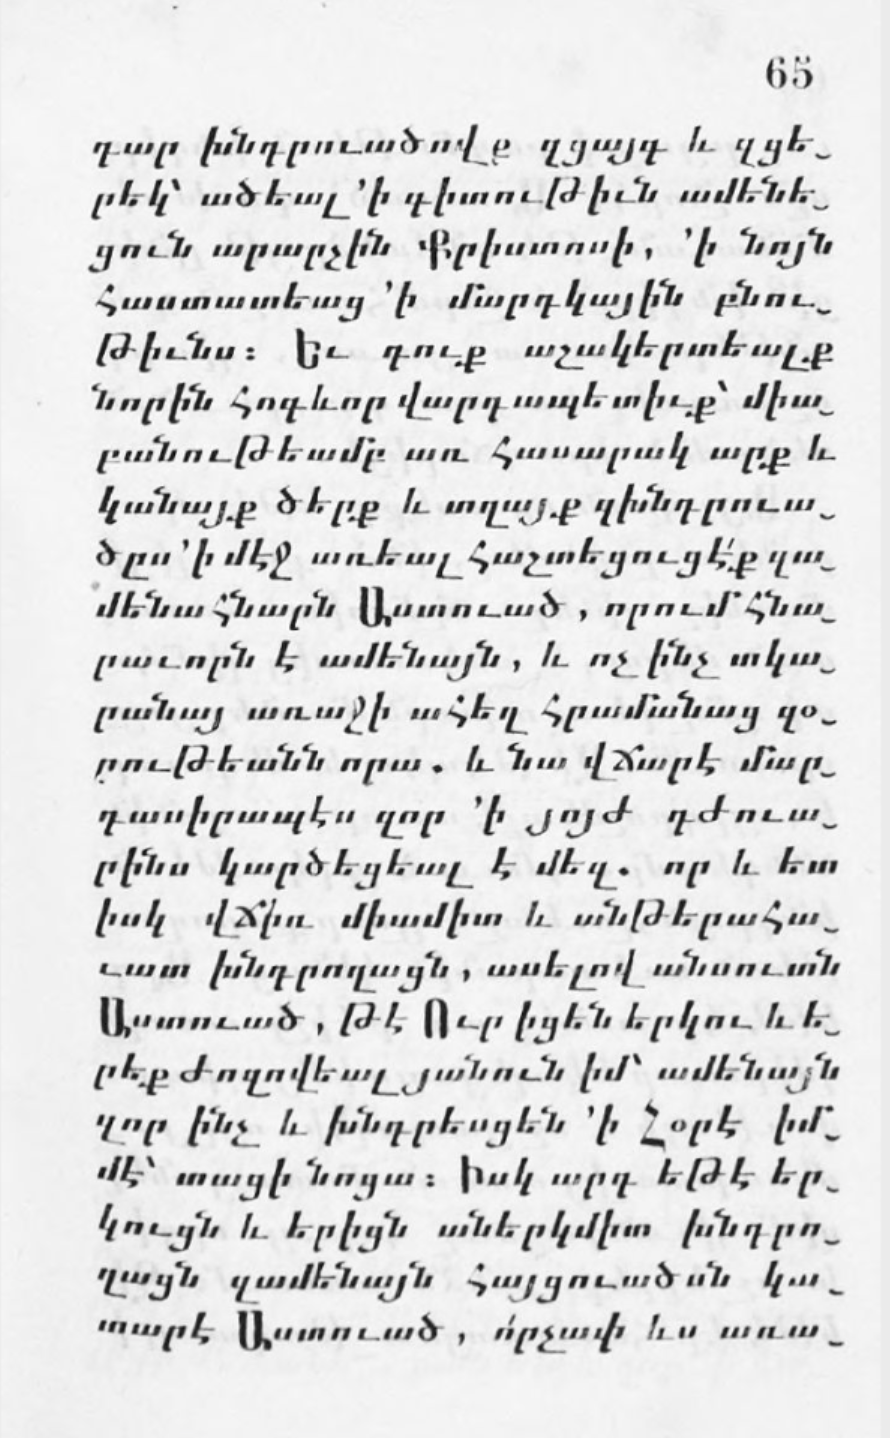 65
դար խնդրուածովք զցայգ և զցե֊
րեկ՝ ածեալ ՚ի գիտութիւն ամենե֊
ցուն արարչին Քրիստոսի, ՚ի նոյն
Հաստատեաց ՚ի մարդկային բնու֊
թիւնս։ Եւ դուք աշակերտեալք
նորին հոգևոր վարդապետիւք՝ միա֊
բանութեամբ առ հասարակ արք և
կանայք ծերք և տղայք զխնդրուա֊
ծըս ՚ի մէջ առեալ հաշտեցուցէ՛ք զա֊
մենահնարն Աստուած, որում հնա֊
րաւորն է ամենայն, և ոչ ինչ տկա֊
րանայ առաջի ահեղ հրամանաց զօ֊
րութեանն որա. և նա վճարէ մար֊
դասիրապէս զոր ՚ի յոյժ դժուա֊
րինս կարծեցեալ է մեզ. որ և ետ
իսկ վճիռ միամիտ և անթերահա֊
ւատ խնդրողացն, ասելով անսուտն
Աստուած, թէ Ուր իցեն երկու և ե֊
րեք ժողովեալ յանուն իմ՝ ամենայն
զոր ինչ և խնդրեսցեն ՚ի Հօրէ իմ֊
մէ՝ տացի նոցա։ Իսկ արդ եթէ եր֊
կուցն և երիցն աներկմիտ խնդրո֊
ղացն զամենայն հայցուածսն կա֊
տարէ Աստուած, ո՛րչափ ևս առա֊